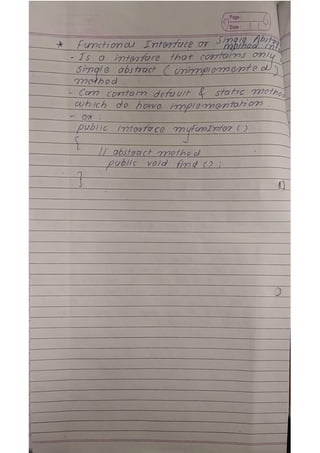 Page
Date
* Functional Interface or Single Abstra
method int
- Is a interface that contains only
single abstract (unimplemented)
method
- Can contain default & static metho
which do have implementation.
- ex:
public interface myfunInter ()
{
// abstract method
public void find ();
}